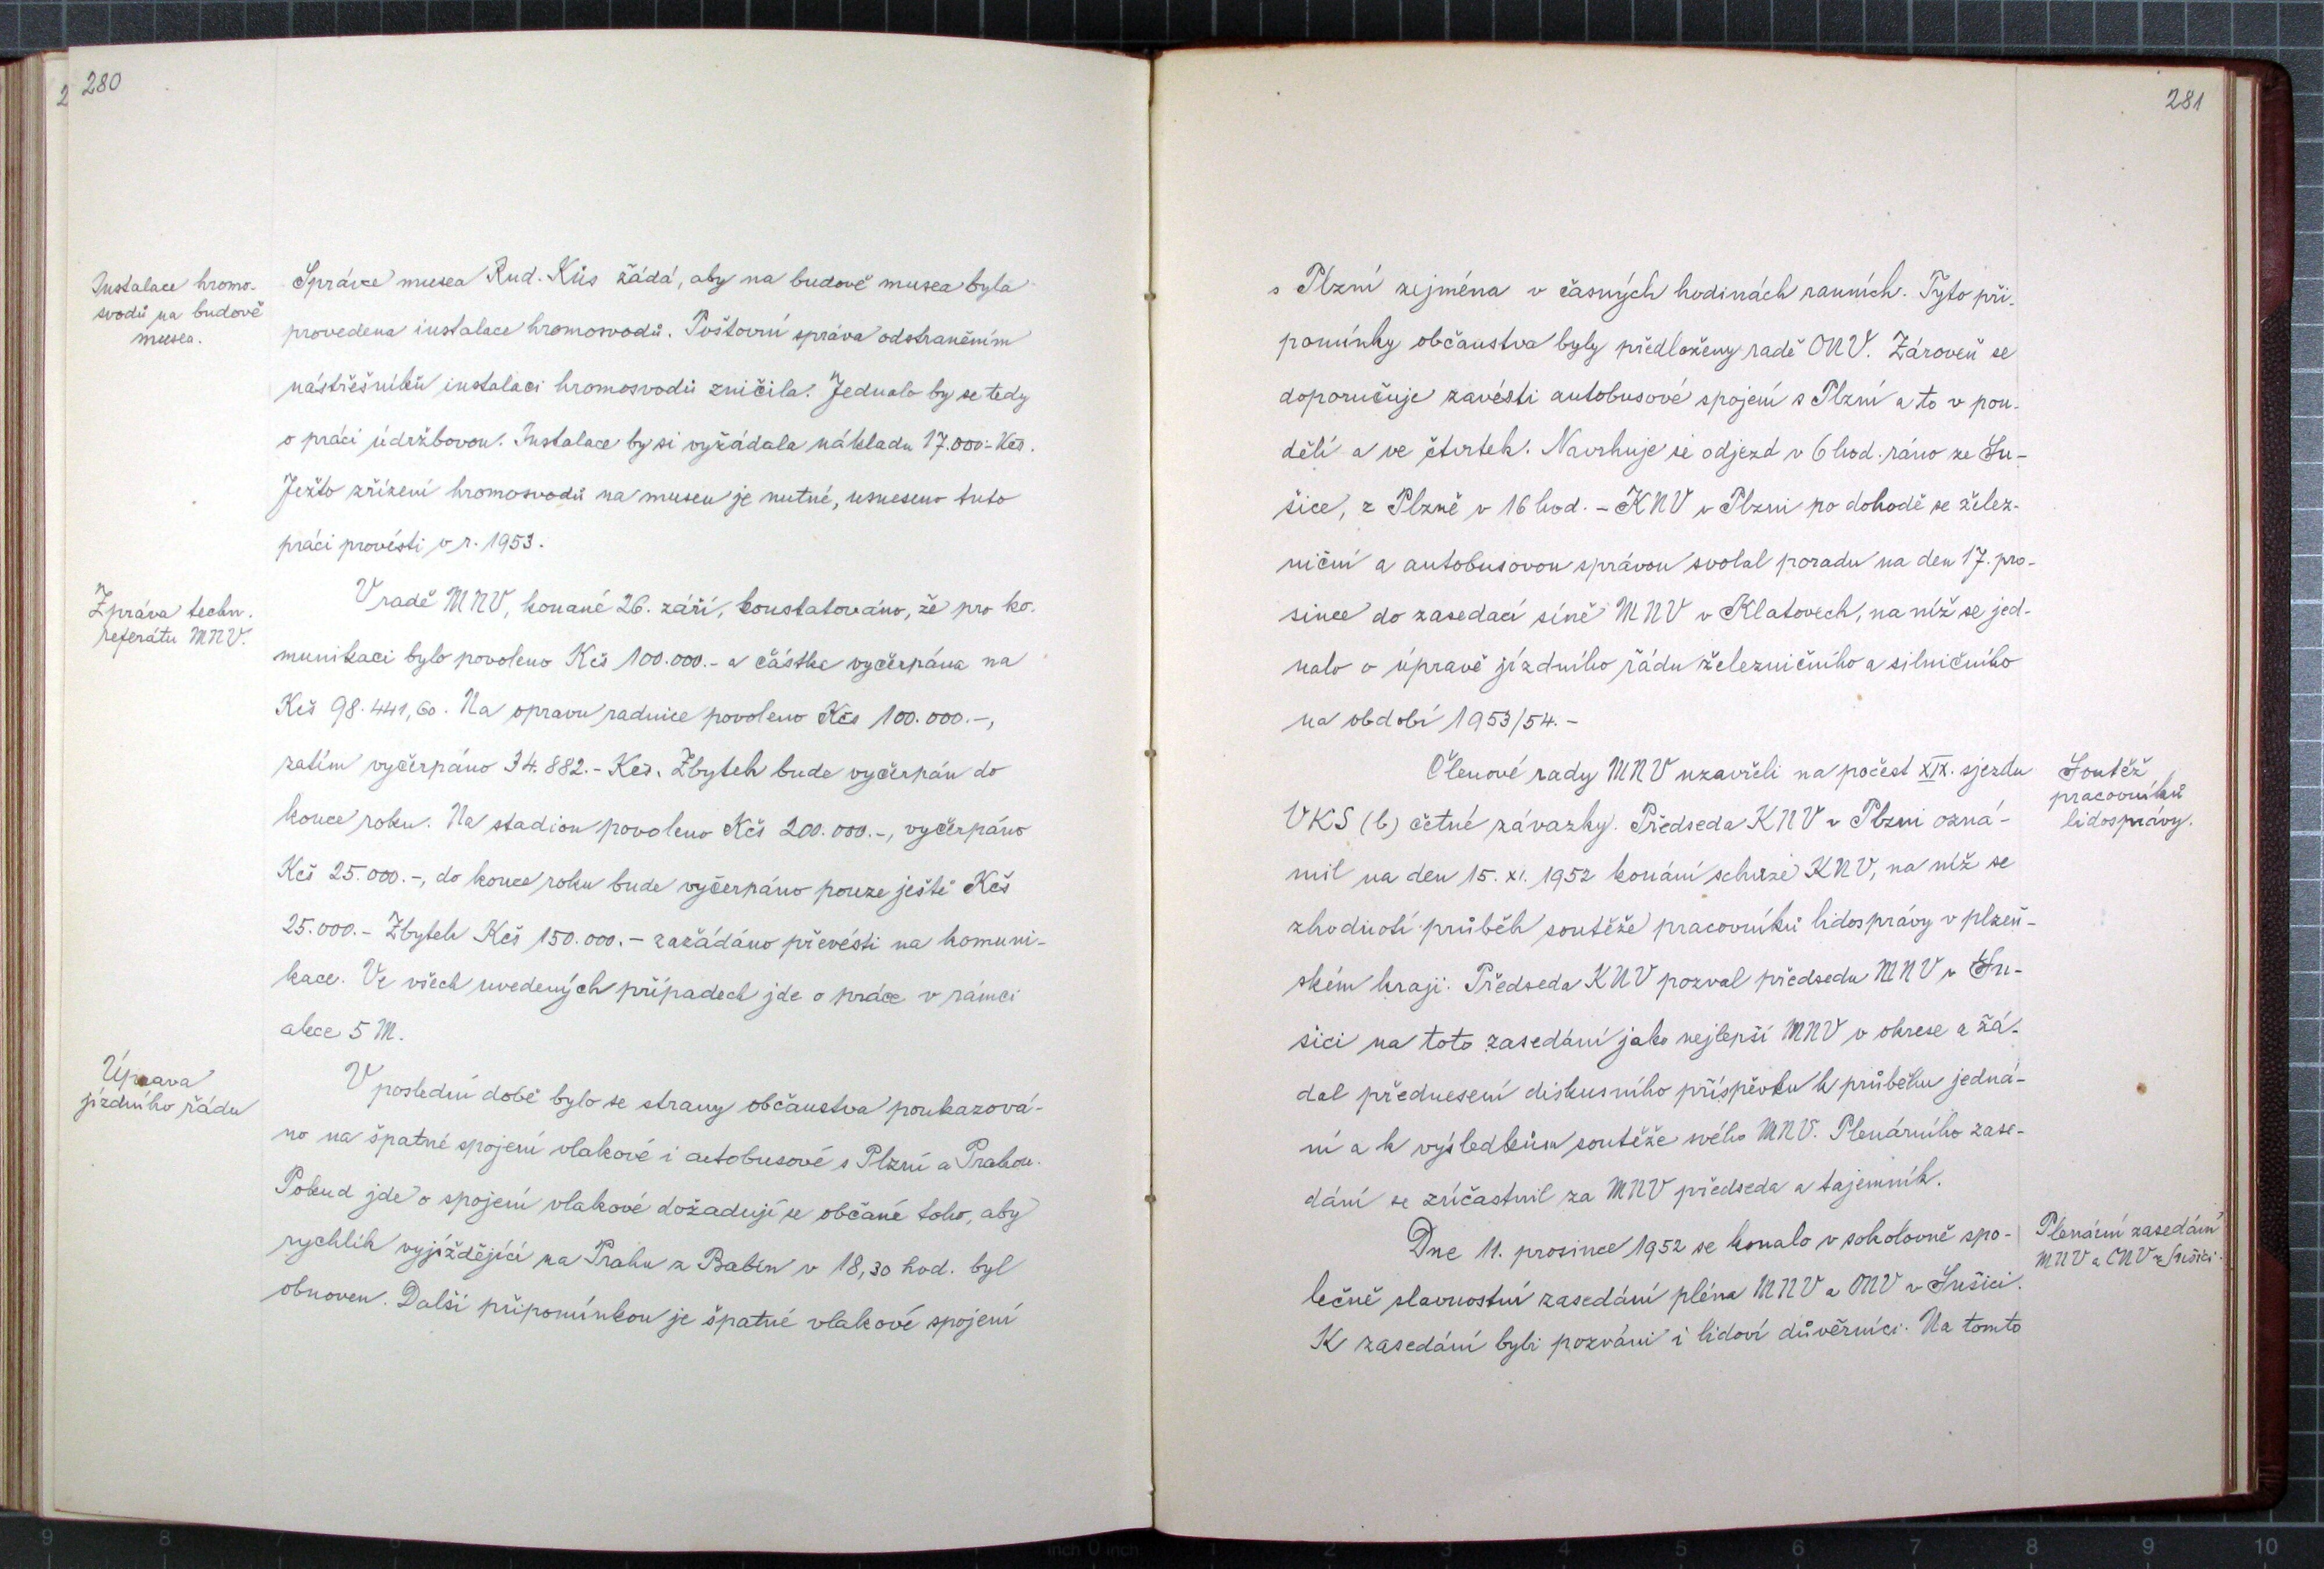 280
Instalace hromo-
svodů na budově
musea.
Správce musea Rud. Kůs žádá, aby na budově musea byla
provedena instalace hromosvodů. Poštovní správa odstraněním
nástřešníků instalaci hromosvodů zničila. Jednalo by se tedy
o práci údržbovou. Instalace by si vyžádala nákladu 17.000.- Kčs.
Ježto zřízení hromosvodů na museu je nutné, usneseno tuto
práci provésti v r. 1953.
Zpráva techn.
referátu MNV.
V radě MNV, konané 26. září, konstatováno, že pro ko-
munikaci bylo povoleno Kčs 100.000.- a částka vyčerpána na
Kčs 98.441,60. Na opravu radnice povoleno Kčs 100.000.-,
zatím vyčerpáno 34.882.- Kčs. Zbytek bude vyčerpán do
konce roku. Na stadion povoleno Kčs 200.000.-, vyčerpáno
Kčs 25.000.-, do konce roku bude vyčerpáno pouze ještě Kčs
25.000.- Zbytek Kčs 150.000.- zažádáno převésti na komuni-
kace. Ve všech uvedených případech jde o práce v rámci
akce 5 M.
Úprava
jízdního řádu
V poslední době bylo se strany občanstva poukazová-
no na špatné spojení vlakové i autobusové s Plzní a Prahou.
Pokud jde o spojení vlakové dožadují se občané toho, aby
rychlík vyjíždějící na Prahu z Babín v 18,30 hod. byl
obnoven. Další připomínkou je špatné vlakové spojení
281
s Plzní zejména v časných hodinách ranních. Tyto při-
pomínky občanstva byly předloženy radě ONV. Zároveň se
doporučuje zavésti autobusové spojení s Plzní a to v pon-
dělí a ve čtvrtek. Navrhuje se odjezd v 6 hod. ráno ze Su-
šice, z Plzně v 16 hod. - KNV v Plzni po dohodě se želez-
niční a autobusovou správou svolal poradu na den 17. pro-
since do zasedací síně MNV v Klatovech, na níž se jed-
nalo o úpravě jízdního řádu železničního a silničního
na období 1953/54. -
Členové rady MNV uzavřeli na počest XIX. sjezdu
VKS (b) četné závazky. Předseda KNV v Plzni ozná-
mil na den 15. XI. 1952 konání schůze KNV, na níž se
zhodnotí průběh soutěže pracovníků lidosprávy v plzeň-
ském kraji. Předseda KNV pozval předsedu MNV v Su-
šici na toto zasedání jako nejlepší MNV v okrese a žá-
dal přednesení diskusního příspěvku k průběhu jedná-
ní a k výsledkům soutěže svého MNV. Plenárního zase-
dání se zúčastnil za MNV předseda a tajemník.
Soutěž
pracovníků
lidosprávy.
Dne 11. prosince 1952 se konalo v sokolovně spo-
lečně slavnostní zasedání pléna MNV a ONV v Sušici.
K zasedání byli pozváni i lidoví důvěrníci. Na tomto
Plenární zasedání
MNV a ONV v Sušici.